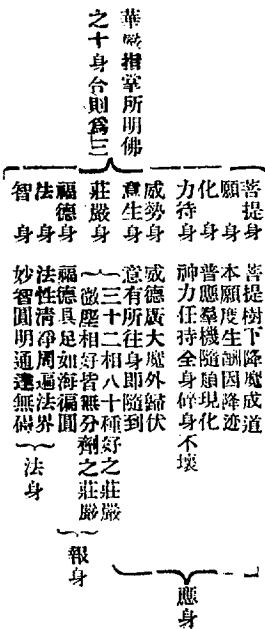 華嚴指掌所明佛
之十身合則為三
菩提身 菩提樹下降魔成道
願身 本願度生酬因降迹
化身 普應羣機隨類現化
力持身 神力任持全身碎身不壞
威勢身 威德廣大魔外歸伏
意生身 意有所往身即隨到
莊嚴身 三十二相八十種好之莊嚴
微塵相好皆無分劑之莊嚴
福德身 福德具足如海徧圓
法身 法性清淨周遍法界
智身 妙智圓明通達無礙
應身
報身
法身